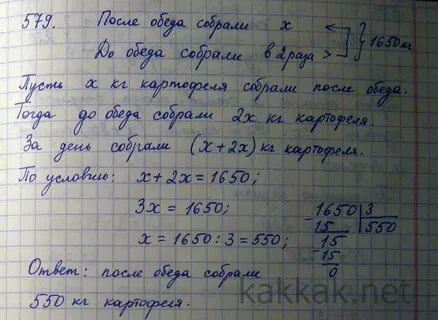 579. После обеда собрали x
До обеда собрали в 2 раза > 1650 кг
Пусть x кг картофеля собрали после обеда.
Тогда до обеда собрали 2x кг картофеля.
За день собрали (x+2x) кг картофеля.
По условию: x+2x = 1650;
3x = 1650;
x = 1650 : 3 = 550;
1650 | 3
15 | 550
15
15
0
Ответ: после обеда собрали
550 кг картофеля.
kakkak.net